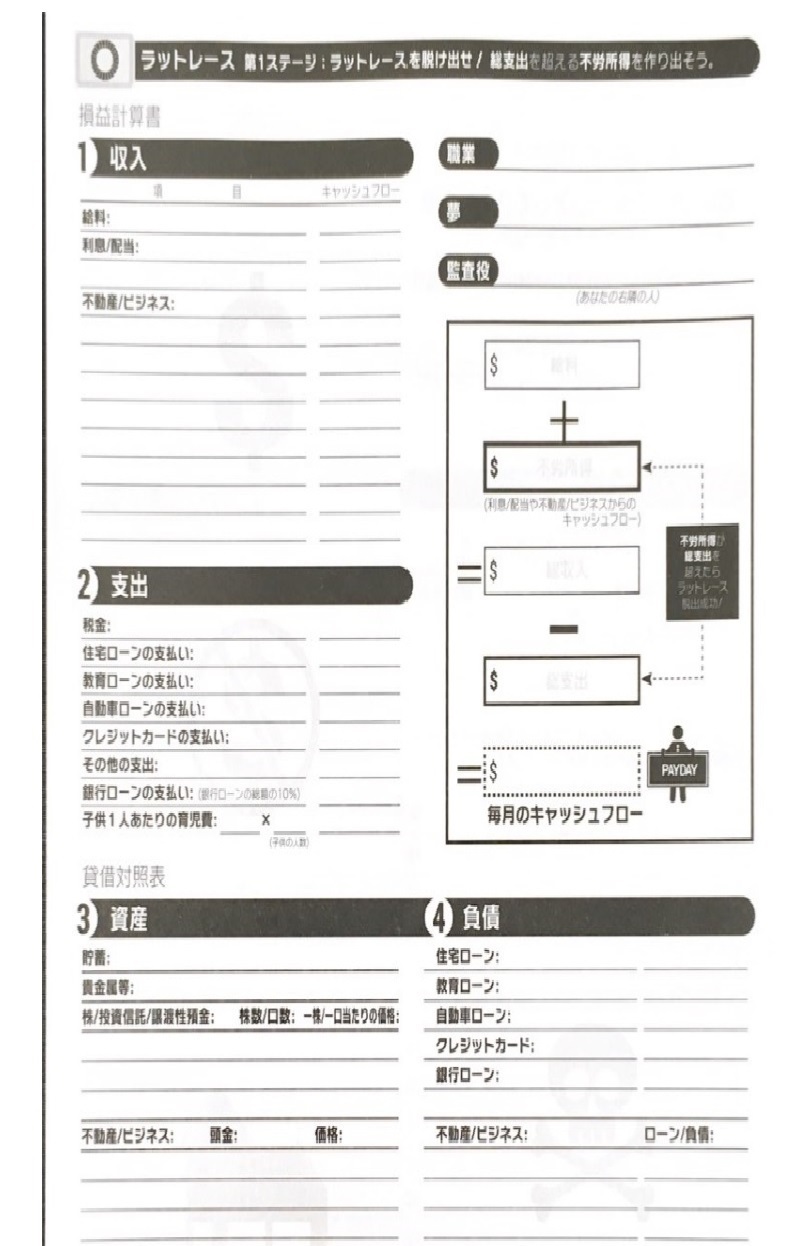 ラットレース 第1ステージ:ラットレースを脱け出せ! 総支出を超える不労所得を作り出そう。
損益計算書
1) 収入
項 目 キャッシュフロー
給料:
利息/配当:
不動産/ビジネス:
2) 支出
税金:
住宅ローンの支払い:
教育ローンの支払い:
自動車ローンの支払い:
クレジットカードの支払い:
その他の支出:
銀行ローンの支払い: (銀行ローンの総額の10%)
子供1人あたりの育児費: ×
(子供の人数)
職業
夢
監査役
(あなたの右隣の人)
$ 給料
+
$ 不労所得
(利息/配当や不動産/ビジネスからの
キャッシュフロー)
= $ 総収入
-
$ 総支出
= $
毎月のキャッシュフロー
不労所得が
総支出を
超えたら
ラットレース
脱出成功!
PAYDAY
貸借対照表
3) 資産
貯蓄:
貴金属等:
株/投資信託/譲渡性預金: 株数/口数: 一株/一口当たりの価格:
不動産/ビジネス: 頭金: 価格:
4) 負債
住宅ローン:
教育ローン:
自動車ローン:
クレジットカード:
銀行ローン:
不動産/ビジネス: ローン/負債: